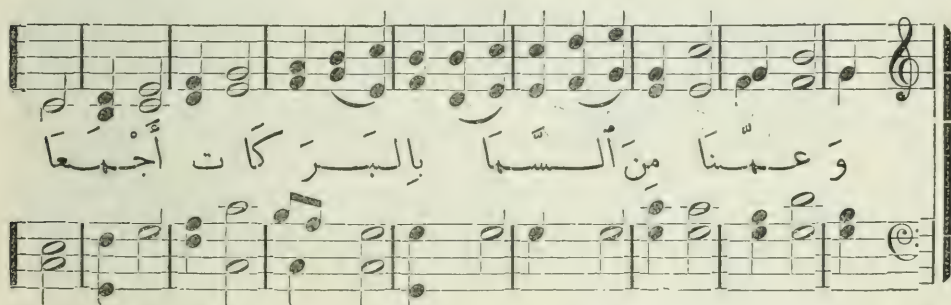 وَ عَمَّنَا مِنَ ٱلسَّمَا بِالبَرَكَات أَجْمَعَا